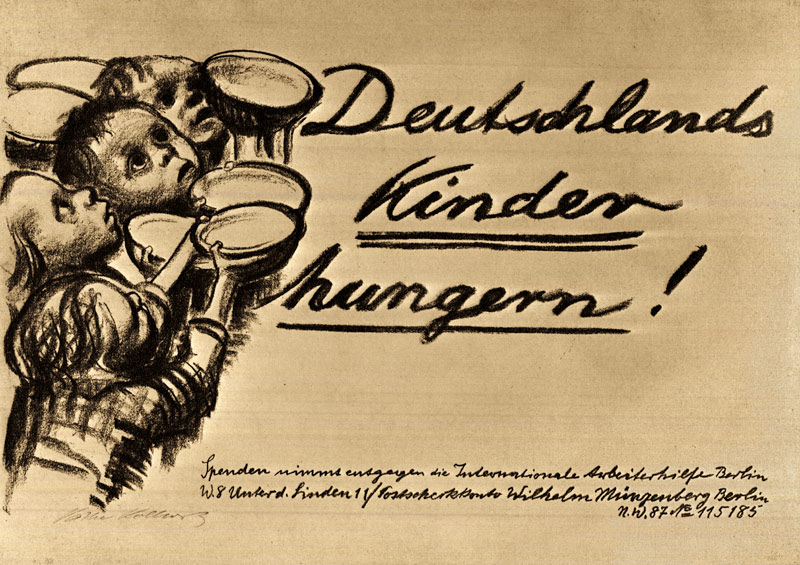 Deutschlands
Kinder
hungern!
Spenden nimmt entgegen die Internationale Arbeiterhilfe Berlin
W.8 Unter d. Linden 11/Postscheckkonto Wilhelm Münzenberg Berlin
N.W.87 No 115185
Käthe Kollwitz